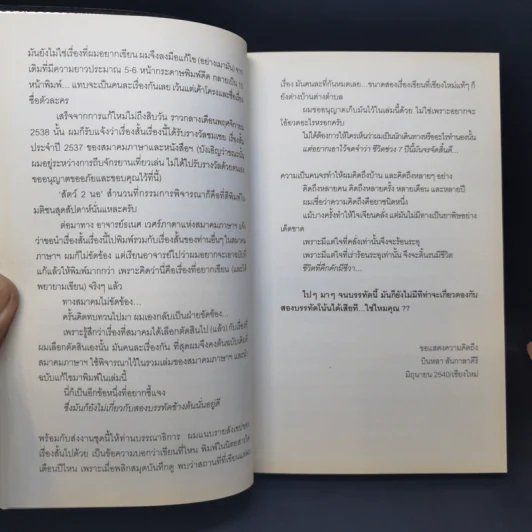 มันยังไม่ใช่เรื่องที่ผมอยากเขียน ผมจึงลงมือแก้ไข (อย่างเมามัน) จาก
เดิมที่มีความยาวประมาณ 5-6 หน้ากระดาษพิมพ์ดีด กลายเป็น
หน้าพิมพ์... แทบจะเป็นคนละเรื่องกันเลย เว้นแต่เค้าโครงและชื่อเรื่อง
ชื่อตัวละคร
เสร็จจากการแก้ไหม่ไม่ถึงสิบวัน ราวกลางเดือนพฤศจิกายน
2538 นั้น ผมก็รับแจ้งว่าเรื่องสั้นเรื่องนี้ได้รับรางวัลชมเชย เรื่องสั้น
ประจำปี 2537 ของสมาคมภาษาและหนังสือฯ (บังเอิญว่าขณะนั้น
ผมอยู่ระหว่างการถีบจักรยานเที่ยวเล่น ไม่ได้ไปรับรางวัลด้วยตนเอง
ขออนุญาตขออภัยและขอบคุณไว้ที่นี้)
'สัตว์ 2 นอ' สำนวนที่กรรมการพิจารณาก็คือที่ตีพิมพ์ใน
มติชนสุดสัปดาห์นั่นแหละครับ
ต่อมาทาง อาจารย์ธเนศ เวศร์ภาดาแห่งสมาคมภาษาฯ แจ้ง
ว่าขอนำเรื่องสั้นเรื่องนี้ไปพิมพ์รวมกับเรื่องสั้นของท่านอื่นๆ ในสมาคม
ภาษาฯ ผมก็ไม่ขัดข้อง แต่เรียนอาจารย์ไปว่าผมอยากจะเอาฉบับที่
แก้แล้วให้พิมพ์มากกว่า เพราะคิดว่านี่คือเรื่องที่อยากเขียน (และได้
พยายามเขียน) จริงๆ แล้ว
ทางสมาคมไม่ขัดข้อง...
ครั้นคิดทบทวนไปมา ผมเองกลับเป็นฝ่ายขัดข้อง...
เพราะรู้สึกว่าเรื่องที่สมาคมได้เลือกตัดสินไป (แล้ว) กับเรื่องที่
ผมเลือกตัดสินเองนั้น มันคนละเรื่องกัน ที่สุดผมจึงคงต้นฉบับเดิมที่
สมาคมภาษาฯ ใช้พิจารณาไว้ในรวมเล่มของสมาคมภาษาฯ และนำ
ฉบับแก้ไขมาพิมพ์ในเล่มนี้
นี่ก็เป็นอีกข้อหนึ่งที่อยากชี้แจง
ซึ่งมันก็ยังไม่เกี่ยวกับสองบรรทัดข้างต้นนั่นอยู่ดี
พร้อมกับส่งงานชุดนี้ให้ท่านบรรณาธิการ ผมแนบรายสังเขปของ
เรื่องสั้นไปด้วย เป็นข้อความบอกว่าเขียนที่ไหน พิมพ์ในนิตยสารใด
เดือนปีไหน เพราะเมื่อพลิกสมุดบันทึกดู พบว่าสถานที่ที่เขียนแต่ละ
เรื่อง มันคนละที่กันหมดเลย...ขนาดสองเรื่องเขียนที่เชียงใหม่แท้ๆ ก็
ยังต่างบ้านต่างตำบล
ผมขออนุญาตเก็บมันไว้ในเล่มนี้ด้วย ไม่ใช่เพราะอยากจะ
โอ้อวดอะไรหรอกครับ
ไม่ได้ต้องการให้ใครเห็นว่าผมเป็นนักเดินทางหรืออะไรทำนองนั้น
แต่อยากเอาไว้จดจำว่า ชีวิตช่วง 7 ปีนี้มันจรจัดสิ้นดี...
ความเป็นคนจรทำให้ผมคิดถึงบ้าน และคิดถึงหลายๆ อย่าง
คิดถึงหลายคน คิดถึงหลายครั้ง หลายเดือน และหลายปี
ผมเชื่อว่าความคิดถึงคือยาชนิดหนึ่ง
แม้บางครั้งทำให้ใจเซียนคลั่ง แต่มันไม่มีทางเป็นยาพิษอย่าง
เด็ดขาด
เพราะมีแต่ใจที่คลั่งเท่านั้นจึงจะร้อนระอุ
เพราะมีแต่ใจที่เร่าร้อนระอุเท่านั้น จึงจะดิ้นรนมีชีวิต
ชีวิตที่คึกคักมีชีวา...
ไปๆ มาๆ จนบรรทัดนี้ มันก็ยังไม่มีทีท่าจะเกี่ยวดองกับ
สองบรรทัดโน้นได้เสียที...ใช่ไหมคุณ ??
ขอแสดงความคิดถึง
บินหลา สันกาลาคีรี
มิถุนายน 2540/เชียงใหม่